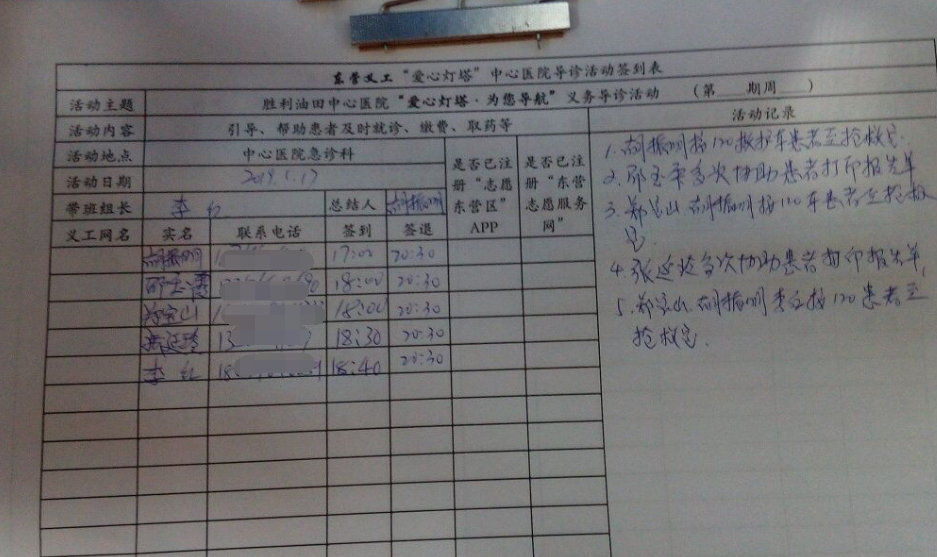 东营义工“爱心灯塔”中心医院导诊活动签到表
活动主题 胜利油田中心医院“爱心灯塔·为您导航”义务导诊活动 （第 期周 ）
活动内容 引导、帮助患者及时就诊、缴费、取药等 活动记录
活动地点 中心医院急诊科
活动日期 2019.1.17
带班组长 李红 总结人 胡振明
是否已注册“志愿东营区”APP
是否已注册“东营志愿服务网”
义工网名 实名 联系电话 签到 签退
胡振明 17:00 20:30
18:00 20:30
郑宝山 18:00 20:30
18:30 20:30
李红 18:40 20:30
1. 胡振明接120救护车患者至抢救室.
2. 多次协助患者打印报告单
3. 郑宝山.胡振明接120车患者至抢救
室.
4. 多次协助患者打印报告单.
5. 郑宝山.胡振明李红接120患者至
抢救室.